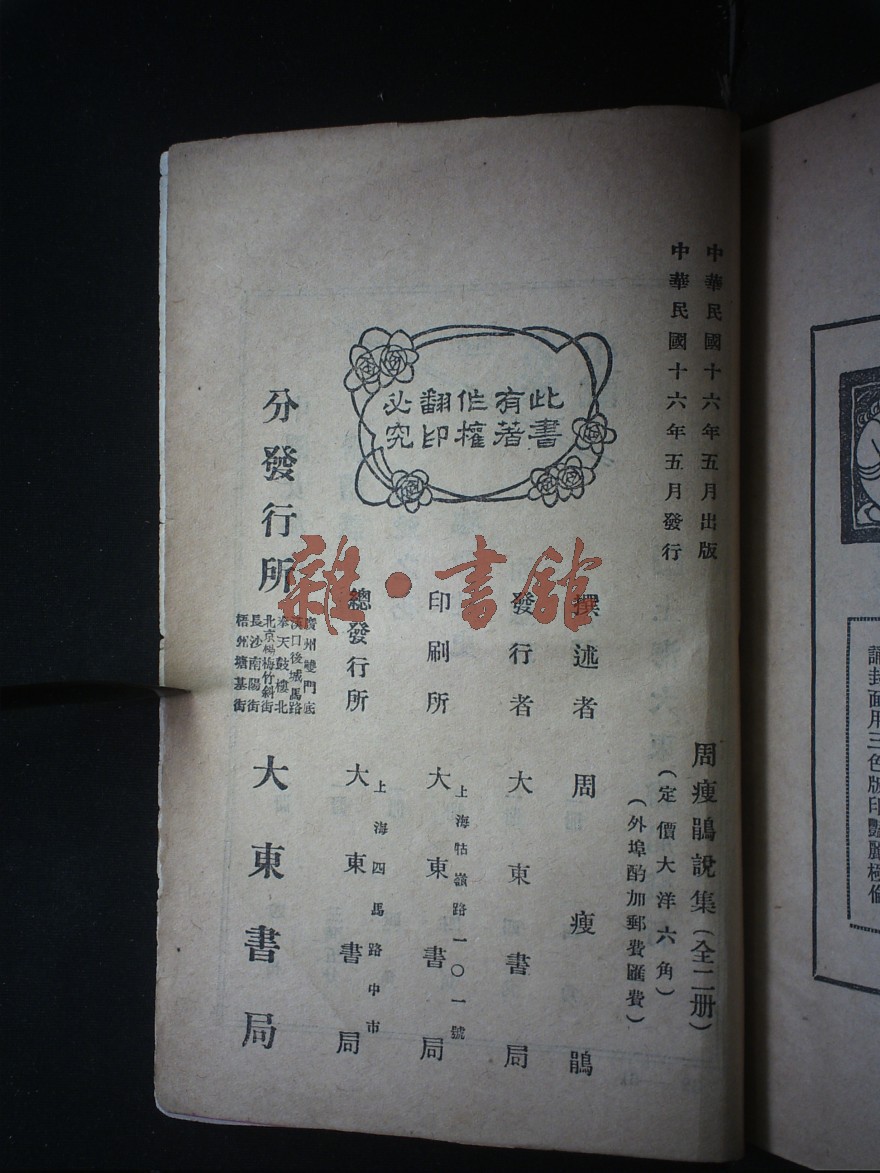 中華民國十六年五月出版
中華民國十六年五月發行
周瘦鵑說集(全二册)
(定價大洋六角)
(外埠酌加郵費匯費)
此書
有著
作權
翻印
必究
撰述者 周瘦鵑
發行者 大東書局
上海牯嶺路一〇一號
印刷所 大東書局
上海四馬路中市
總發行所 大東書局
分發行所
廣州雙門底
漢口後城馬路
奉天鼓樓北
北京楊梅竹斜街
長沙南陽街
梧州塘基街
大東書局
雜·書舘
誦封面用三色版印豔麗極倫